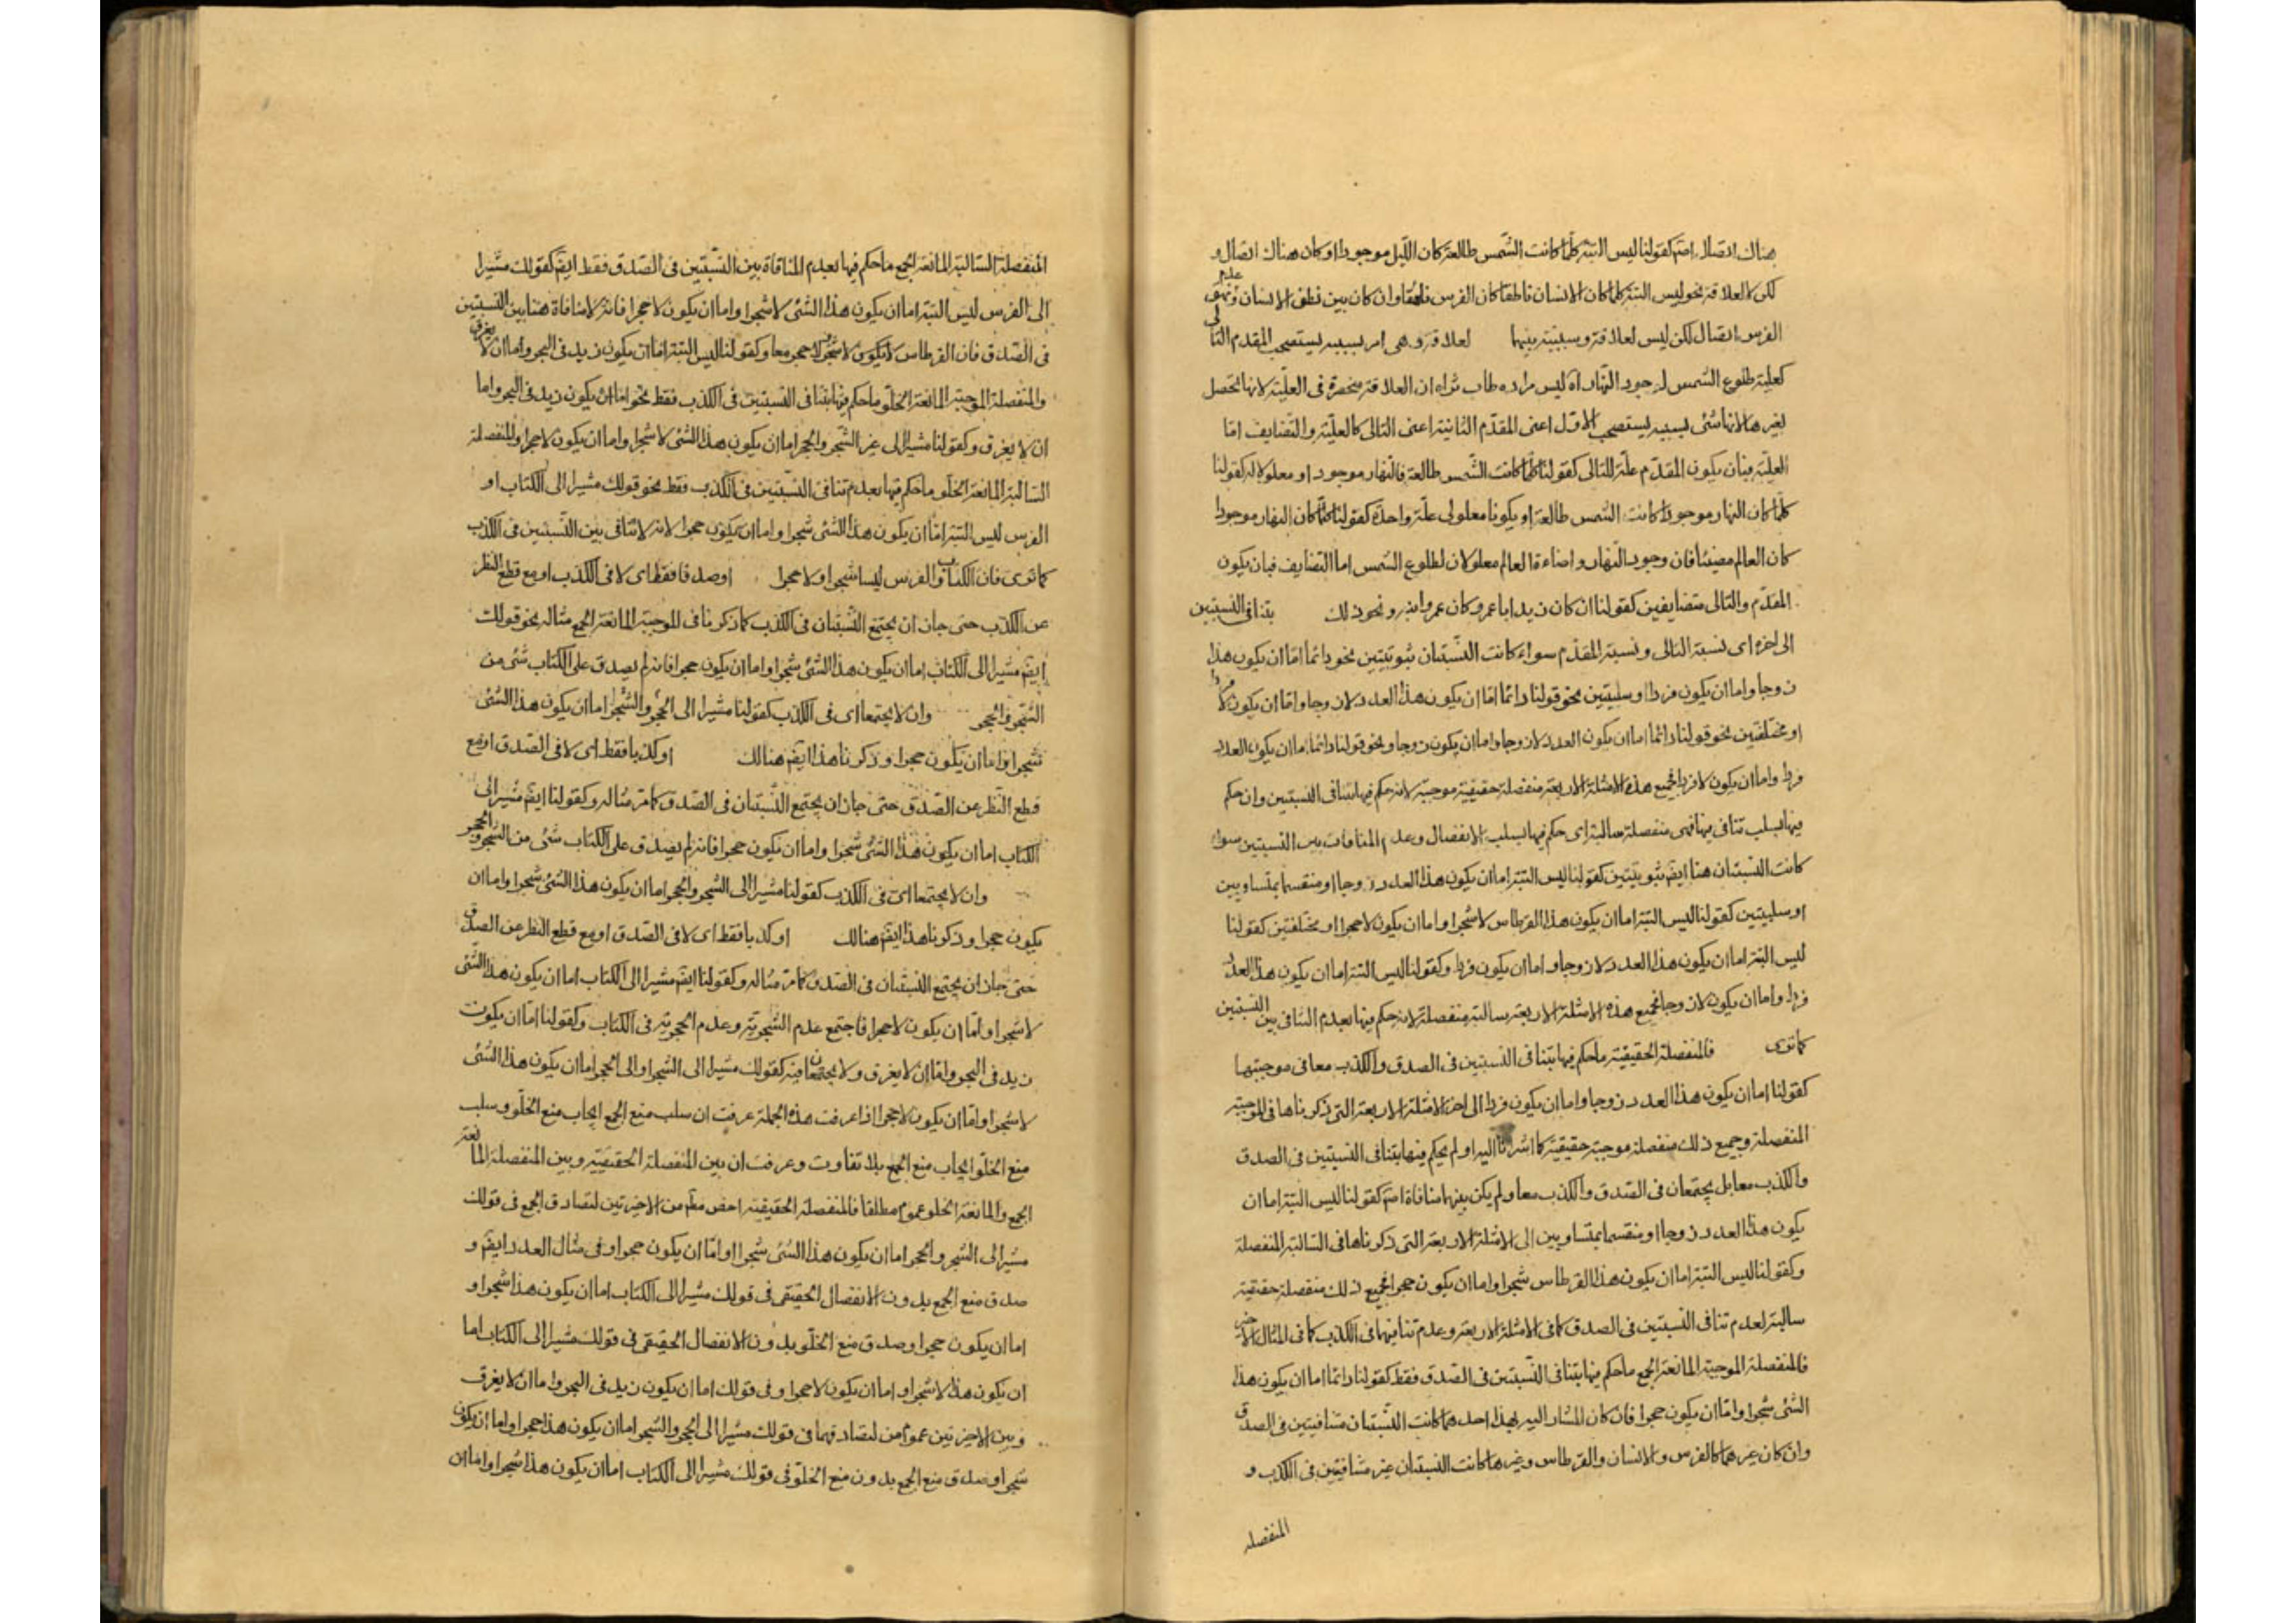 هناك اتصال اصم كقولنا ليس البتة كلما كانت الشمس طالعة كان الليل موجودا او كان هناك اتصال و
لكن لا لعلاقة نحو ليس البتة كلما كان الانسان ناطقا كان الفرس ناهقا وان كان بين نطق الانسان ونهق
الفرس اتصال لكن ليس لعلاقة وسببية بينهما لعلاقة وهى امر بسببه يستصحب المقدم التالى
كعلية طلوع الشمس لوجود النهار اه ليس مراده طاب ثراه ان العلاقة منحصرة فى العلية لانها تحصل
بغيرها لانها شئ بسببه يستصحب الاول اعنى المقدم الثانية اعنى التالى كالعلية والتضايف اما
العلية فبان يكون المقدم علة للتالى كقولنا كلما كانت الشمس طالعة فالنهار موجود او معلولا له كقولنا
كلما كان النهار موجودا كانت الشمس طالعة او يكونا معلولى علة واحدة كقولنا كلما كان النهار موجودا
كان العالم مضيئا فان وجود النهار واضاءة العالم معلولان لطلوع الشمس اما التضايف فبان يكون
المقدم والتالى متضايفين كقولنا ان كان زيد ابا عمرو كان عمرو ابنه ونحو ذلك بتنافى النسبتين
الى اخره اى نسبة التالى ونسبة المقدم سواء كانت النسبتان ثبوتيتين نحو دائما اما ان يكون هذا
زوجا واما ان يكون فردا او سلبيتين نحو قولنا دائما اما ان يكون هذا العدد لا زوجا واما ان يكون لا فردا
او مختلفتين نحو قولنا دائما اما ان يكون العدد لا زوجا واما ان يكون زوجا ونحو قولنا دائما اما ان يكون العدد
فردا واما ان يكون لا فردا فجميع هذه الامثلة الاربعة منفصلة حقيقية موجبة لانه حكم فيها بتنافى النسبتين وان حكم
فيها بسلب تنافى فيها فهى منفصلة سالبة اى حكم فيها بسلب الانفصال وعدم المنافات بين النسبتين سواء
كانت النسبتان هنا ايضم ثبوتيتين كقولنا ليس البتة اما ان يكون هذا العدد زوجا او منقسما بمتساويين
او سلبيتين كقولنا ليس البتة اما ان يكون هذا القرطاس لا شجرا واما ان يكون لا حجرا او مختلفتين كقولنا
ليس البتة اما ان يكون هذا العدد لا زوجا واما ان يكون فردا وكقولنا ليس البتة اما ان يكون هذا العدد
فردا واما ان يكون لا زوجا فجميع هذه الامثلة الاربعة سالبة منفصلة لانه حكم فيها بعدم التنافى بين النسبتين
كما ترى فالمنفصلة الحقيقية ما حكم فيها بتنافى النسبتين فى الصدق والكذب معا فى موجبتها
كقولنا اما ان يكون هذا العدد زوجا واما ان يكون فردا الى اخر الامثلة الاربعة التى ذكرناها فى الموجبة
المنفصلة وجميع ذلك منفصلة موجبة حقيقية كما اشرنا اليه او لم يحكم فيها بتنافى النسبتين فى الصدق
والكذب معا بل يجتمعان فى الصدق والكذب معا ولم يكن بينهما منافاة اصم كقولنا ليس البتة اما ان
يكون هذا العدد زوجا او منقسما بمتساويين الى الامثلة الاربعة التى ذكرناها فى السالبة المنفصلة
وكقولنا ليس البتة اما ان يكون هذا القرطاس شجرا واما ان يكون حجرا فجميع ذلك منفصلة حقيقية
سالبة لعدم تنافى النسبتين فى الصدق كما فى الامثلة الاربعة وعدم تنافيهما فى الكذب كما فى المثال الاخير
فالمنفصلة الموجبة المانعة الجمع ما حكم فيها بتنافى النسبتين فى الصدق فقط كقولنا دائما اما ان يكون هذا
الشئ شجرا واما ان يكون حجرا فان كان المشار اليه بهذا احدهما كانت النسبتان متنافيتين فى الصدق
وان كان غيرهما كالفرس والانسان والقرطاس وغيرها كانت النسبتان غير متنافيتين فى الكذب و
المنفصلة
المنفصلة السالبة المانعة الجمع ما حكم فيها بعدم المنافاة بين النسبتين فى الصدق فقط ايضم كقولك مشيرا
الى الفرس ليس البتة اما ان يكون هذا الشئ لا شجرا واما ان يكون لا حجرا فانه لا منافاة هنا بين النسبتين
فى الصدق فان القرطاس لا يكون لا شجرا ولا حجر معا وكقولنا ليس البتة اما ان يكون زيد فى البحر واما ان لا يغرق
والمنفصلة الموجبة المانعة الخلو ما حكم فيها بتنافى النسبتين فى الكذب فقط نحو اما ان يكون زيد فى البحر واما
ان لا يغرق وكقولنا مشيرا الى غير الشجر والحجر اما ان يكون هذا الشئ لا شجرا واما ان يكون لا حجرا والمنفصلة
السالبة المانعة الخلو ما حكم فيها بعدم تنافى النسبتين فى الكذب فقط نحو قولك مشيرا الى الكتاب او
الفرس ليس البتة اما ان يكون هذا الشئ شجرا واما ان يكون حجرا لانه لا تنافى بين النسبتين فى الكذب
كما ترى فان الكتاب والفرس ليسا شجرا ولا حجرا او صدقا فقط اى لا فى الكذب او مع قطع النظر
عن الكذب حتى جاز ان يجتمع النسبتان فى الكذب كما ذكرنا فى الموجبة المانعة الجمع مثاله نحو قولك
ايضم مشيرا الى الكتاب اما ان يكون هذا الشئ شجرا واما ان يكون حجرا فانه لم يصدق على الكتاب شئ من
الشجر والحجر وان لا يجتمعا اى فى الكذب كقولنا مشيرا الى الحجر والشجر اما ان يكون هذا الشئ
شجرا واما ان يكون حجرا وذكرنا هذا ايضم هنالك او كذبا فقط اى لا فى الصدق او مع
قطع النظر عن الصدق حتى جاز ان يجتمع النسبتان فى الصدق كما مر مثاله وكقولنا ايضم مشيرا الى
الكتاب اما ان يكون هذا الشئ شجرا واما ان يكون حجرا فانه لم يصدق على الكتاب شئ من الشجر والحجر
وان لا يجتمعا اى فى الكذب كقولنا مشيرا الى الشجر والحجر اما ان يكون هذا الشئ شجرا واما ان
يكون حجرا وذكرنا هذا ايضم هنالك او كذبا فقط اى لا فى الصدق او مع قطع النظر عن الصدق
حتى جاز ان يجتمع النسبتان فى الصدق كما مر مثاله وكقولنا ايضم مشيرا الى الكتاب اما ان يكون هذا الشئ
لا شجرا واما ان يكون لا حجرا فاجتمع عدم الشجرية وعدم الحجرية فى الكتاب وكقولنا اما ان يكون
زيد فى البحر واما ان لا يغرق ولا يجتمعان فيه كقولك مشيرا الى الشجر او الى الحجر اما ان يكون هذا الشئ
لا شجرا واما ان يكون لا حجرا اذا عرفت هذه الجملة عرفت ان سلب منع الجمع ايجاب منع الخلو وسلب
منع الخلو ايجاب منع الجمع بلا تفاوت وعرفت ان بين المنفصلة الحقيقية وبين المنفصلة المانعة
الجمع والمانعة الخلو عموم مطلقا فالمنفصلة الحقيقية اخص مطم من الاخيرتين لتصادق الجمع فى قولك
مشيرا الى الشجر والحجر اما ان يكون هذا الشئ شجرا او اما ان يكون حجرا وفى مثال العدد ايضم و
صدق منع الجمع بدون الانفصال الحقيقى فى قولك مشيرا الى الكتاب اما ان يكون هذا شجرا و
اما ان يكون حجرا وصدق منع الخلو بدون الانفصال الحقيقى فى قولك مشيرا الى الكتاب اما
ان يكون هذا لا شجرا واما ان يكون لا حجرا وفى قولك اما ان يكون زيد فى البحر واما ان لا يغرق
وبين الاخيرتين عموم من لتصادقهما فى قولك مشيرا الى الحجر والشجر اما ان يكون هذا حجرا واما ان يكون
شجرا وصدق منع الجمع بدون منع الخلو فى قولك مشيرا الى الكتاب اما ان يكون هذا شجرا واما ان